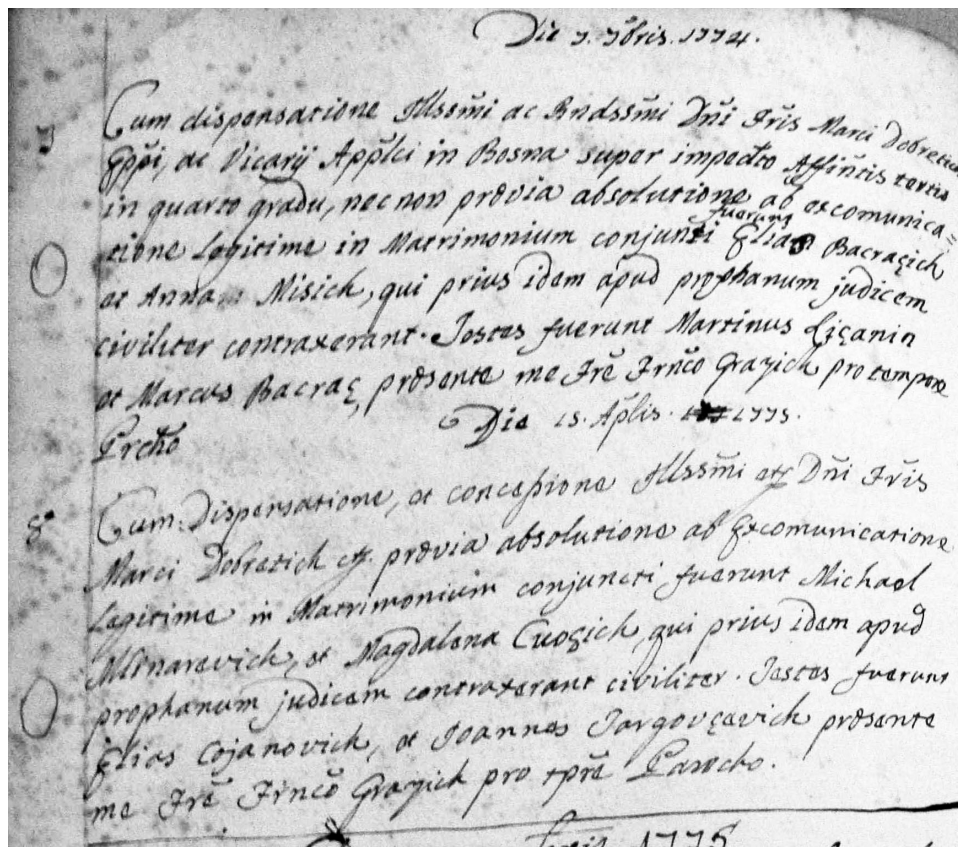 Die 7. 7bris. 1774.
7
Cum dispensatione Illssm̃i ac Rndssm̃i Dñi Fr̃is Marci Dobretich
Epp̃i, ac Vicarij App̃lci in Bosna super impedto Affiñtis tertio
in quarto gradu, nec non prævia absolutione ab excomunica=
tione Legitime in Matrimonium conjuncti fuerunt Elias Bacraçich
et Anna Misich, qui prius idem apud prophanum judicem
civiliter contraxerant. Testes fuerunt Martinus Liçanin
et Marcus Bacraç, præsente me Frẽ Frñco Grazich pro tempore
Prcħo
Die 15. Ap̃lis. 1775.
8
Cum Dispensatione, et concessione Illssm̃i etc Dñi Fr̃is
Marci Dobretich etc. prævia absolutione ab Excomunicatione
Legitime in Matrimonium conjuncti fuerunt Michael
Mlinarevich, et Magdalena Cvoçich, qui prius idem apud
prophanum judicem contraxerant civiliter. Testes fuerunt
Elias Cojanovich, et Joannes Targovçevich præsente
me Frẽ Frñco Grazich pro tp̃re Parocho.
1775